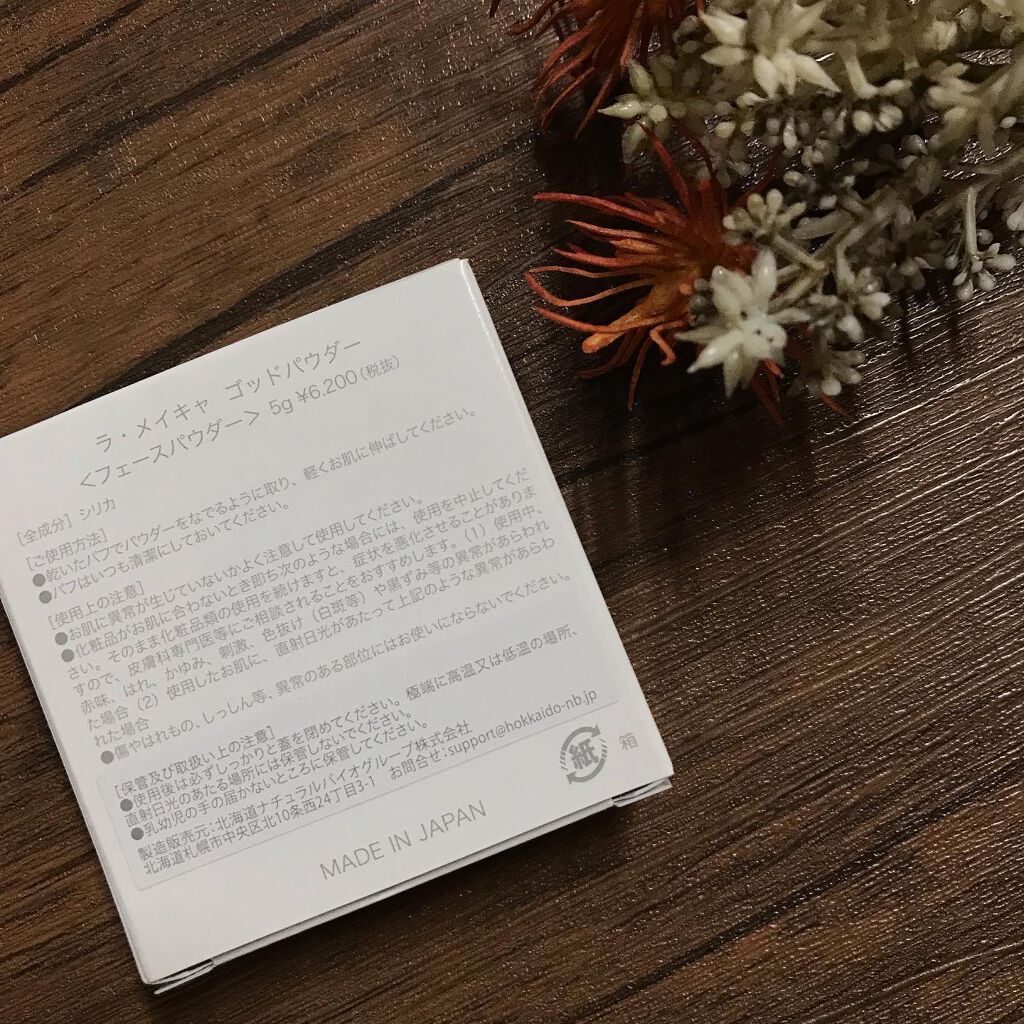 ラ・メイキャ ゴッドパウダー
＜フェースパウダー＞ 5g ¥6,200(税抜)
[全成分] シリカ
[ご使用方法]
●乾いたパフでパウダーをなでるように取り、軽くお肌に伸ばしてください。
●パフはいつも清潔にしておいてください。
[使用上の注意]
●お肌に異常が生じていないかよく注意して使用してください。
●化粧品がお肌に合わないとき即ち次のような場合には、使用を中止してくだ
さい。そのまま化粧品類の使用を続けますと、症状を悪化させることがありま
すので、皮膚科専門医等にご相談されることをおすすめします。(1) 使用中、
赤味、はれ、かゆみ、刺激、色抜け(白斑等)や黒ずみ等の異常があらわれ
た場合 (2) 使用したお肌に、直射日光があたって上記のような異常があらわ
れた場合
●傷やはれもの、しっしん等、異常のある部位にはお使いにならないでください。
[保管及び取扱い上の注意]
●使用後は必ずしっかりと蓋を閉めてください。極端に高温又は低温の場所、
直射日光のあたる場所には保管しないでください。
●乳幼児の手の届かないところに保管してください。
製造販売元:北海道ナチュラルバイオグループ株式会社
北海道札幌市中央区北10条西24丁目3-1 お問合せ:support@hokkaido-nb.jp
紙 箱
MADE IN JAPAN